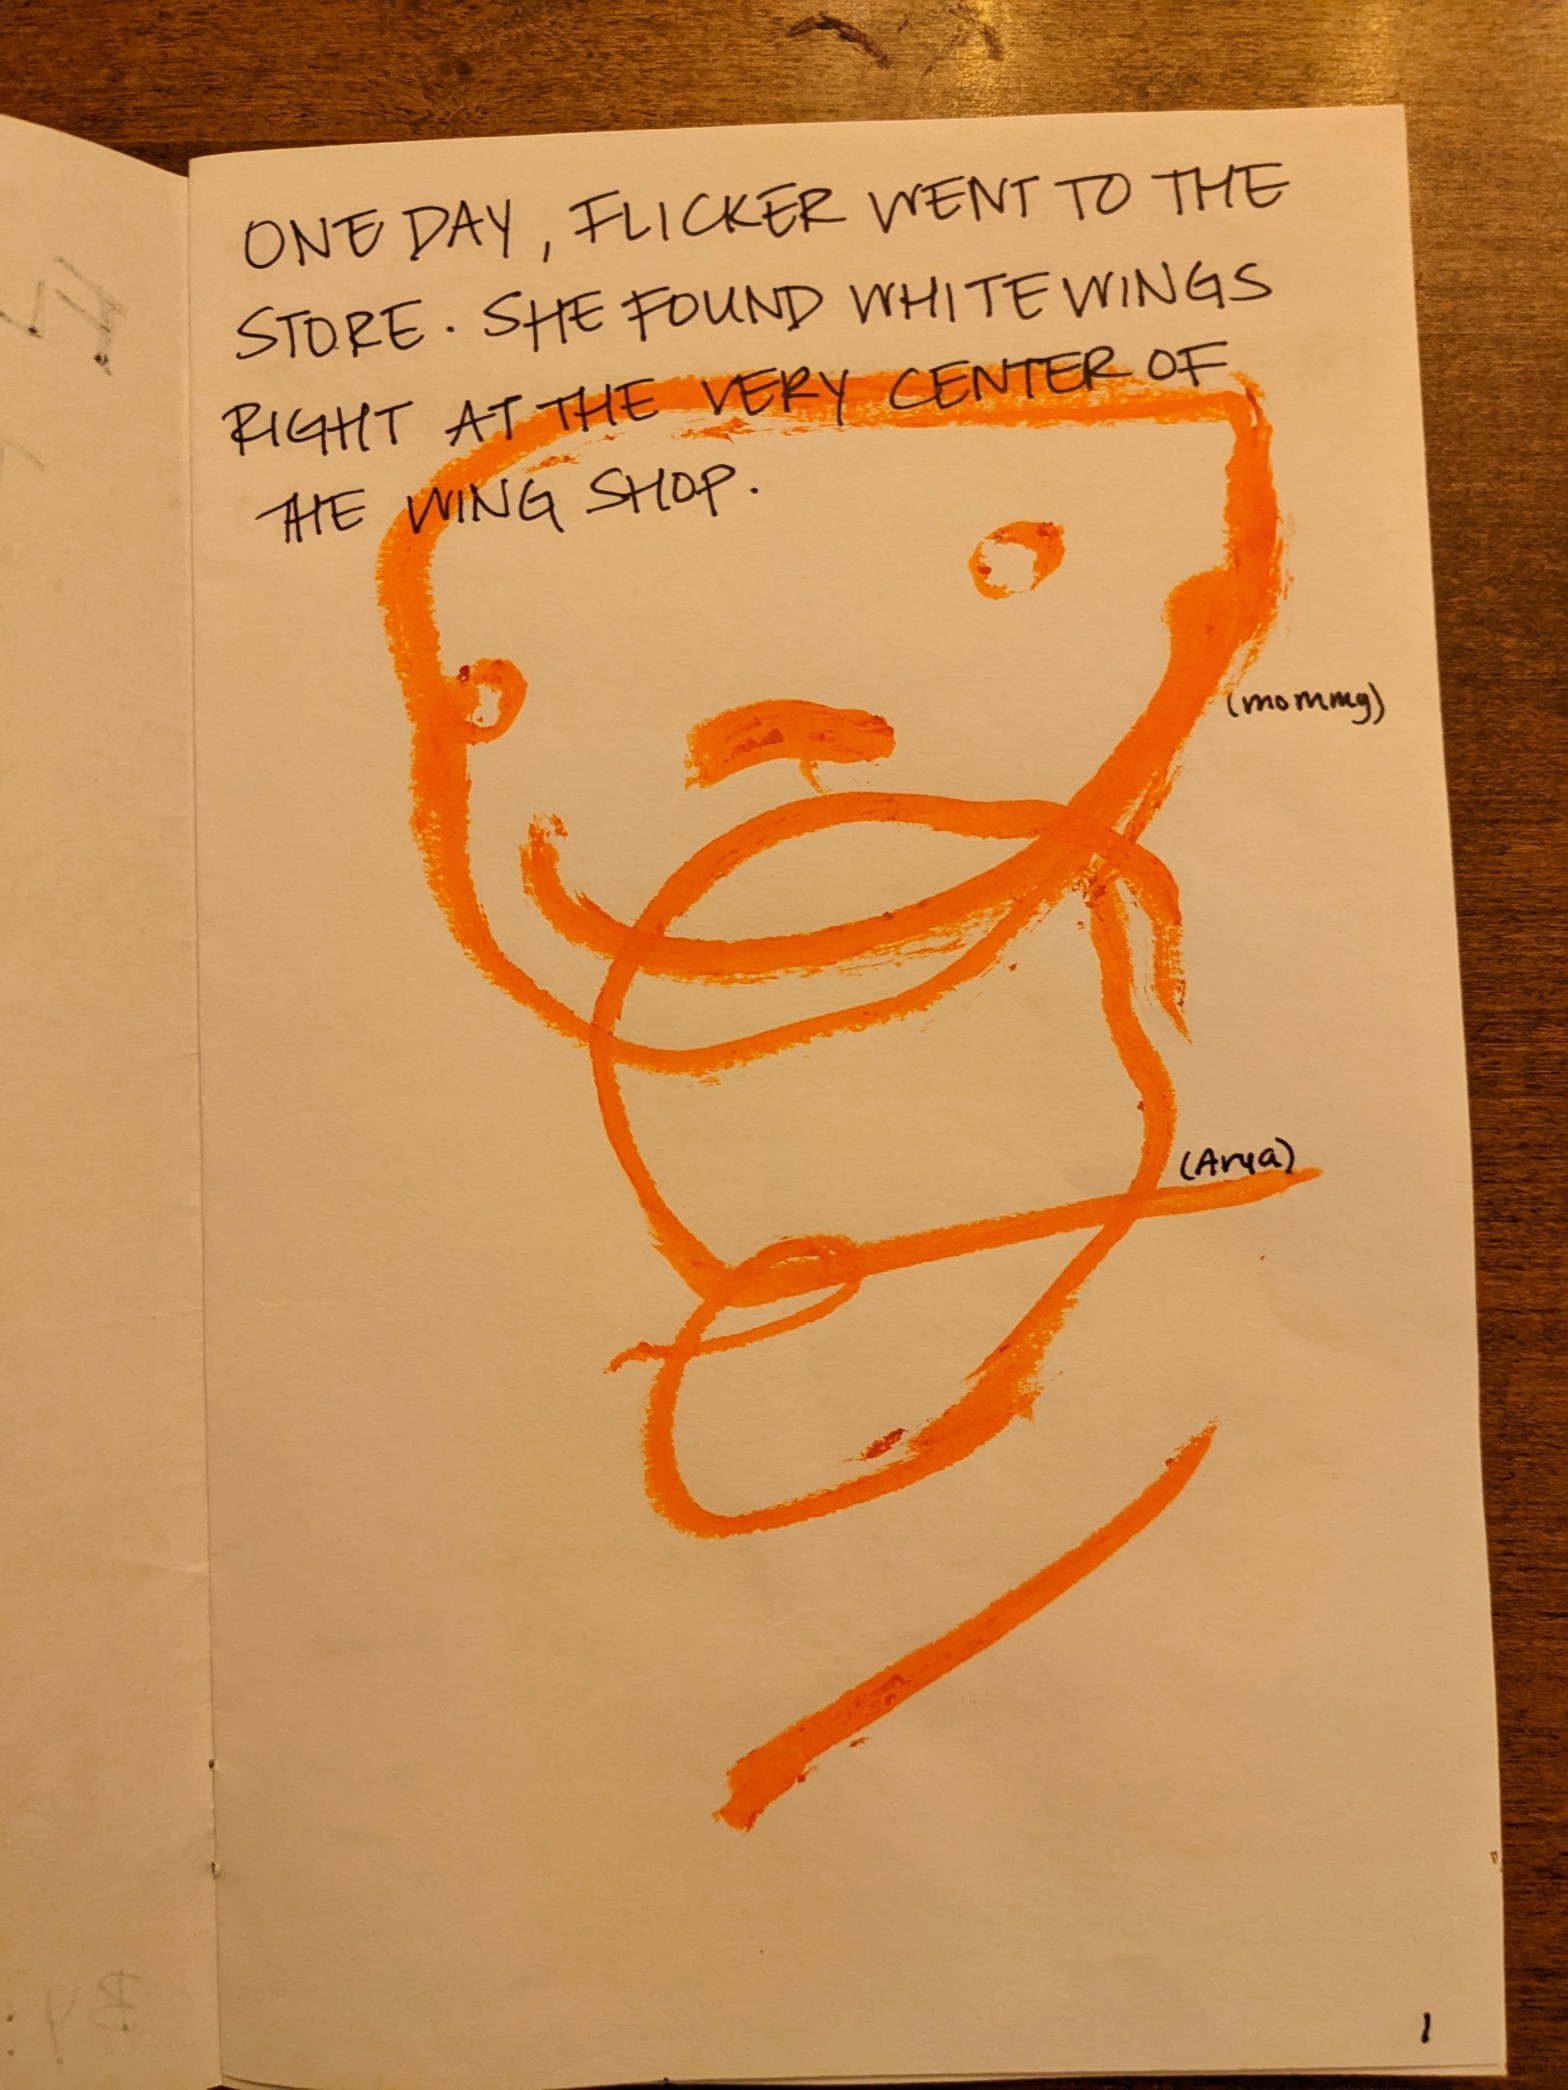 ONE DAY, FLICKER WENT TO THE
STORE. SHE FOUND WHITE WINGS
RIGHT AT THE VERY CENTER OF
THE WING SHOP.
(mommy)
(Arya)
1